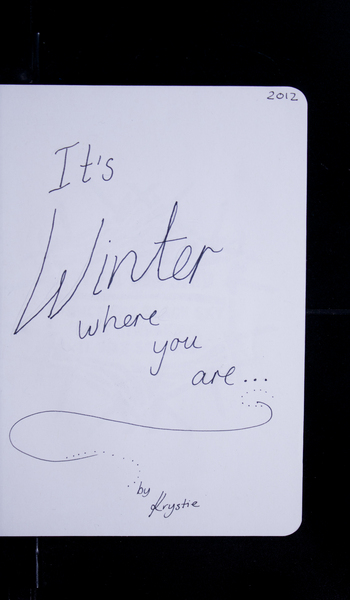 2012
It's
Winter
where
you
are...
by
Krystie